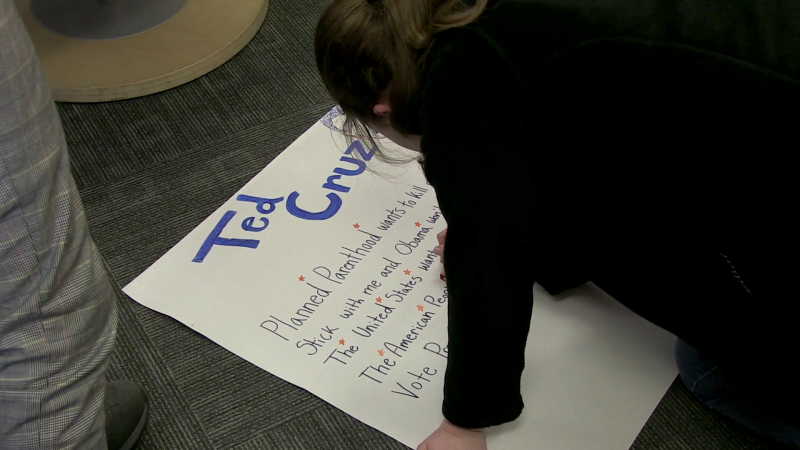 Ted Cruz
Planned Parenthood wants to kill
Stick with me and Obama won't
The United States want
The American
Vote